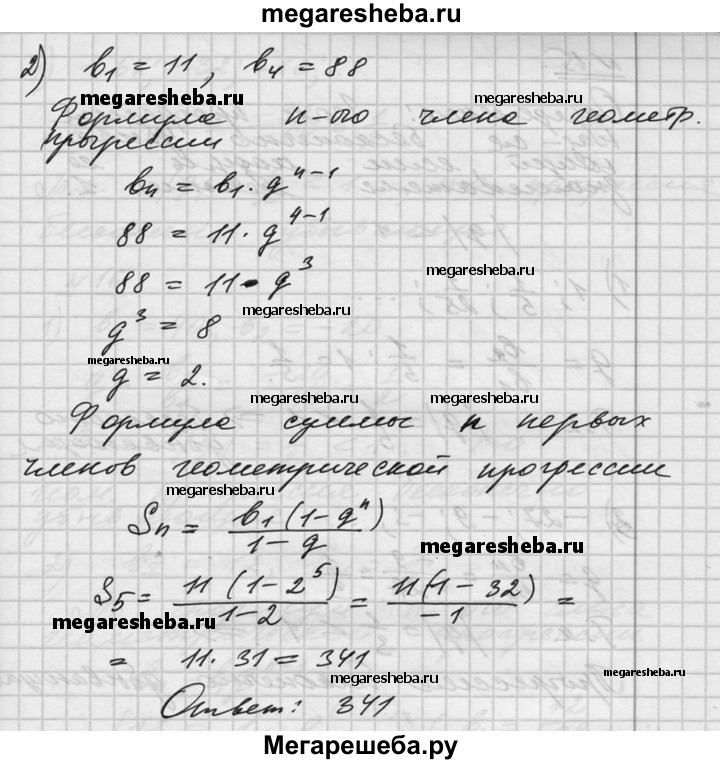 megaresheba.ru
2) b₁ = 11, b₄ = 88
megaresheba.ru
Формула n-ого члена геометр.
прогрессии
megaresheba.ru
bₙ = b₁ · qⁿ⁻¹
88 = 11 · q⁴⁻¹
megaresheba.ru
88 = 11 · q³
megaresheba.ru
q³ = 8
megaresheba.ru
q = 2.
megaresheba.ru megaresheba.ru
Формула суммы n первых
членов геометрической прогрессии
megaresheba.ru
Sₙ = b₁(1-qⁿ) / 1-q
megaresheba.ru
S₅ = 11(1-2⁵) / 1-2 = 11(1-32) / -1 =
megaresheba.ru
= 11 · 31 = 341
megaresheba.ru megaresheba.ru
Ответ: 341
Мегарешеба.ру